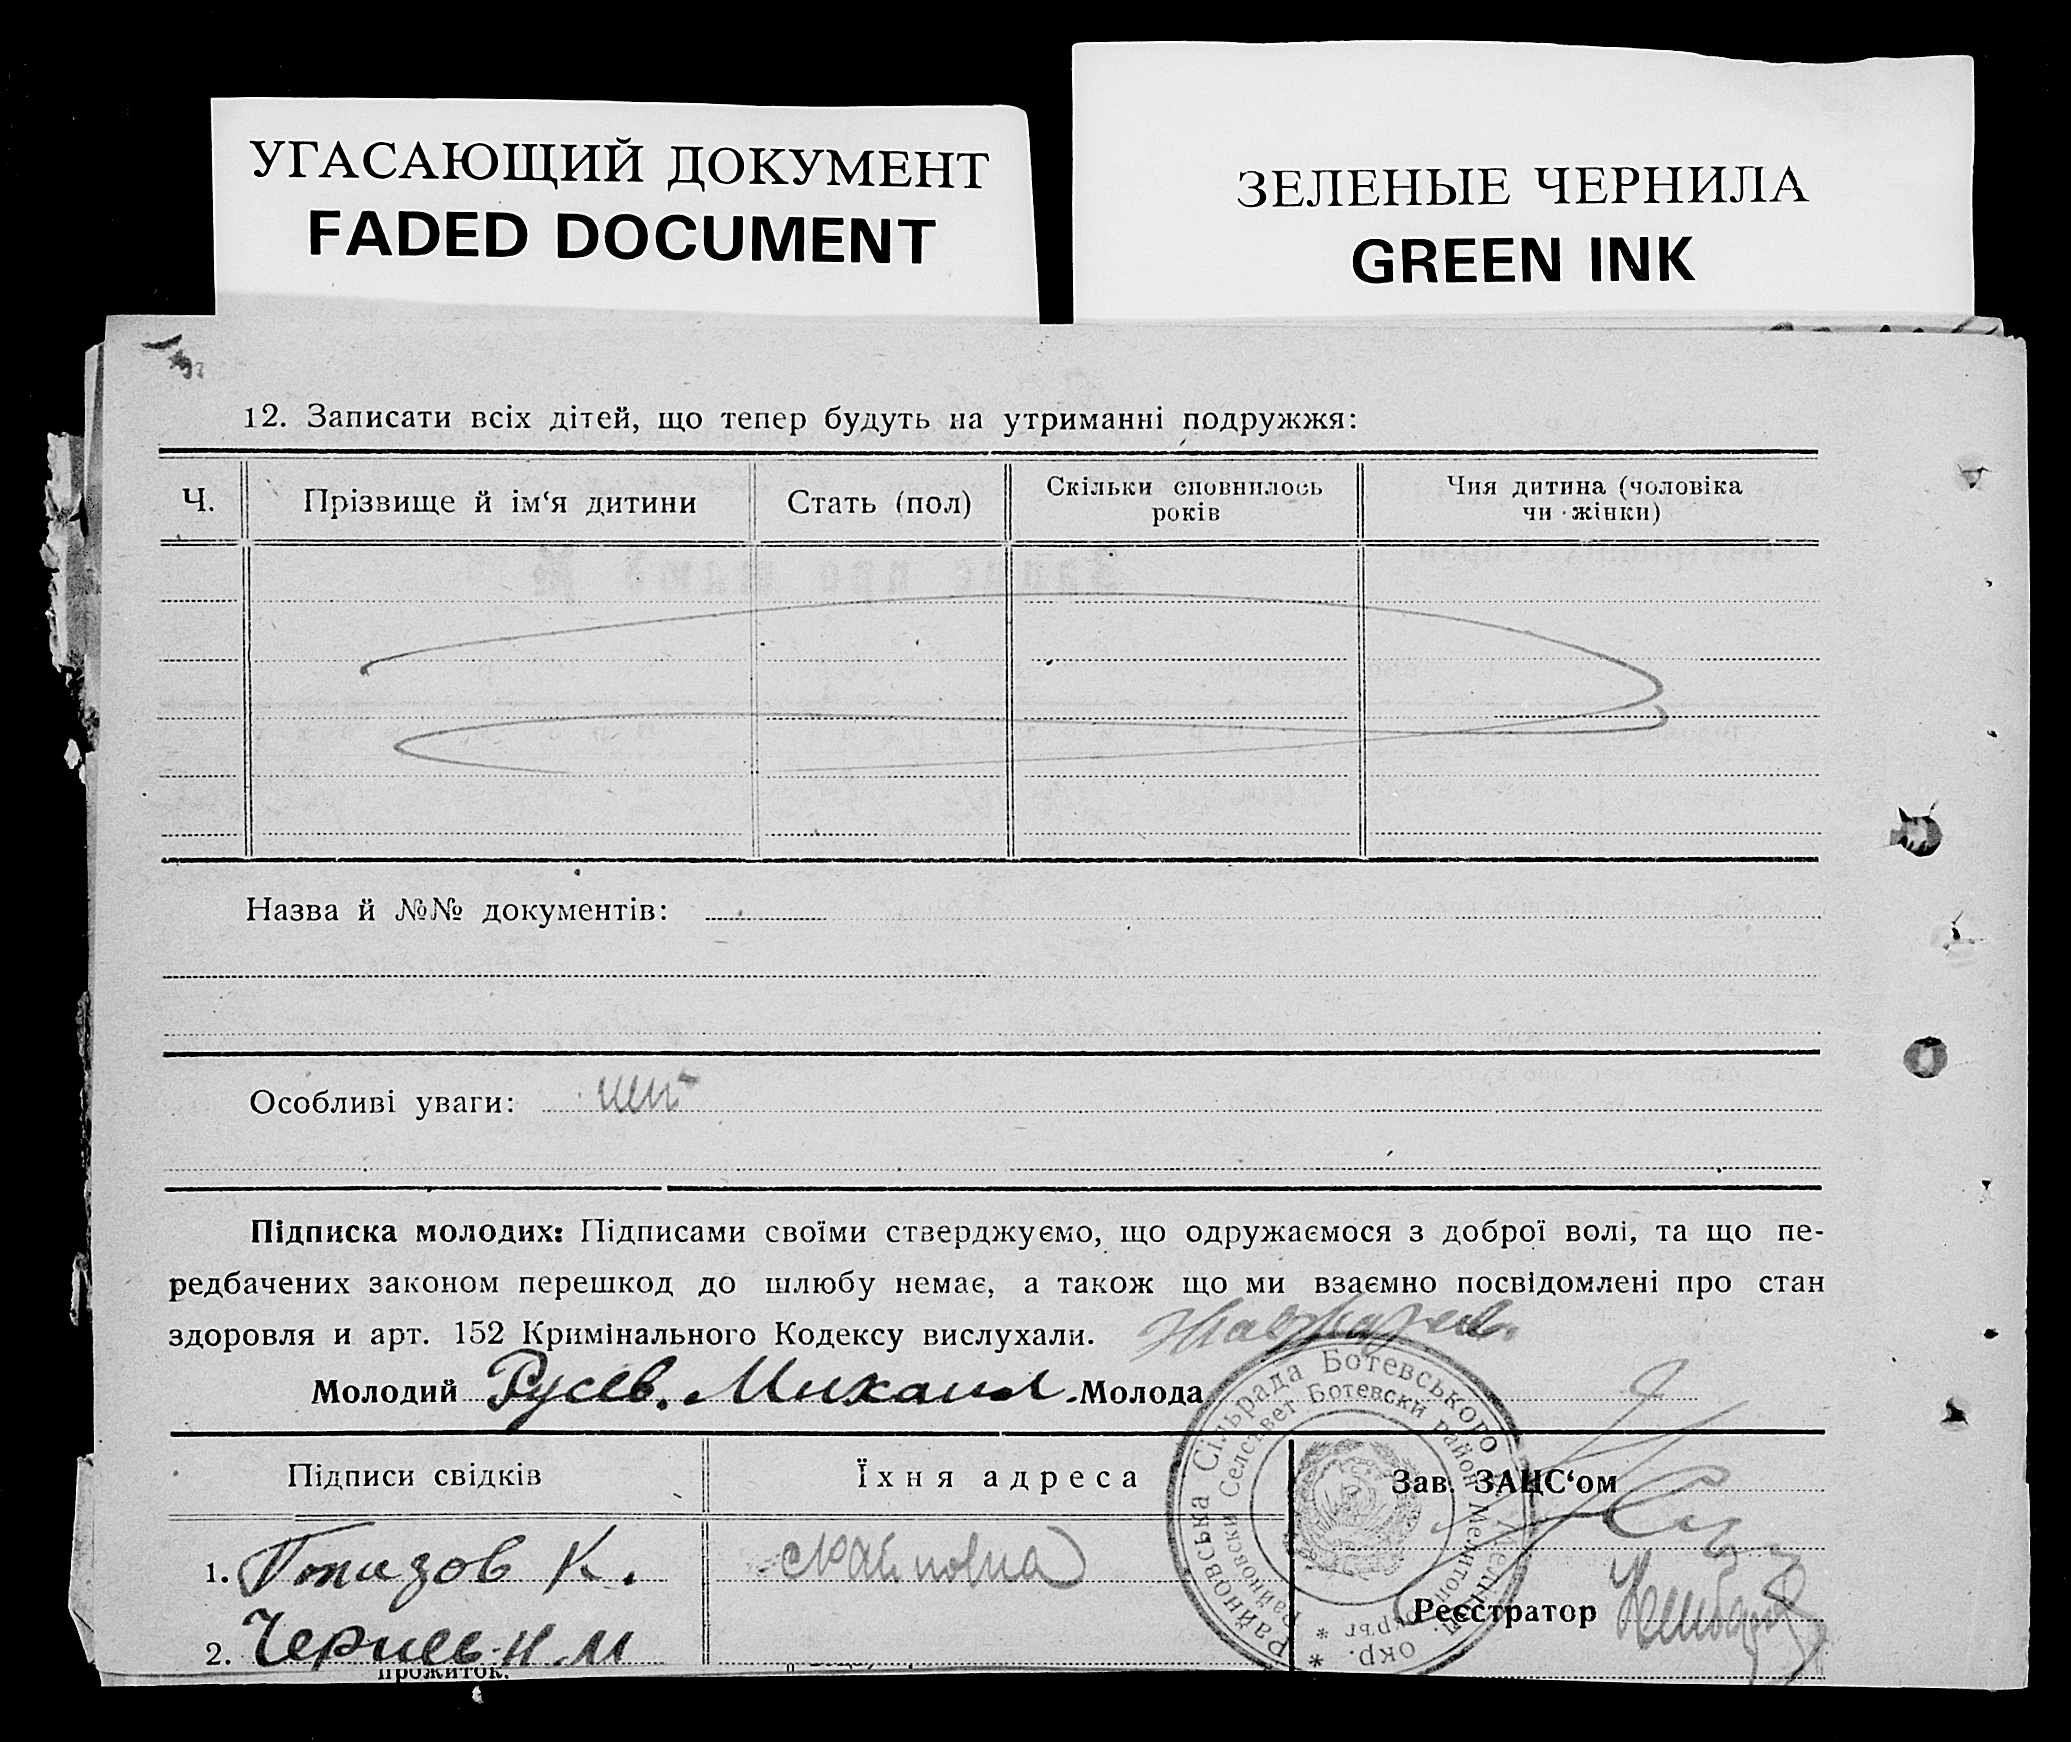 УГАСАЮЩИЙ ДОКУМЕНТ
FADED DOCUMENT
ЗЕЛЕНЫЕ ЧЕРНИЛА
GREEN INK
12. Записати всіх дітей, що тепер будуть на утриманні подружжя:
Ч.
Прізвище й ім‘я дитини
Стать (пол)
Скільки сповнилось
років
Чия дитина (чоловіка
чи жінки)
Назва й №№ документів:
Особливі уваги:
Підписка молодих: Підписами своїми стверджуємо, що одружаємося з доброї волі, та що пе-
редбачених законом перешкод до шлюбу немає, а також що ми взаємно посвідомлені про стан
здоровля и арт. 152 Кримінального Кодексу вислухали.
Молодий Русев. Михаил Молода
Райновська Сільрада Ботевського Меліпіл. окр. *
Райновски Селсъвет Ботевски район Мелитопол. окръг *
Підписи свідків
Їхня адреса
Зав. ЗАЦС‘ом
1. К.
Реєстратор
2. Чернев Н М
прожиток.